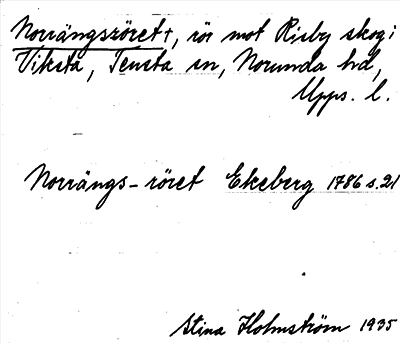 Norrängsröret†, rör mot Risby skog i
Viksta, Tensta sn, Norunda hd,
Upps. l.
Norrängs-röret Ekeberg 1786 s.21
Stina Holmström 1935